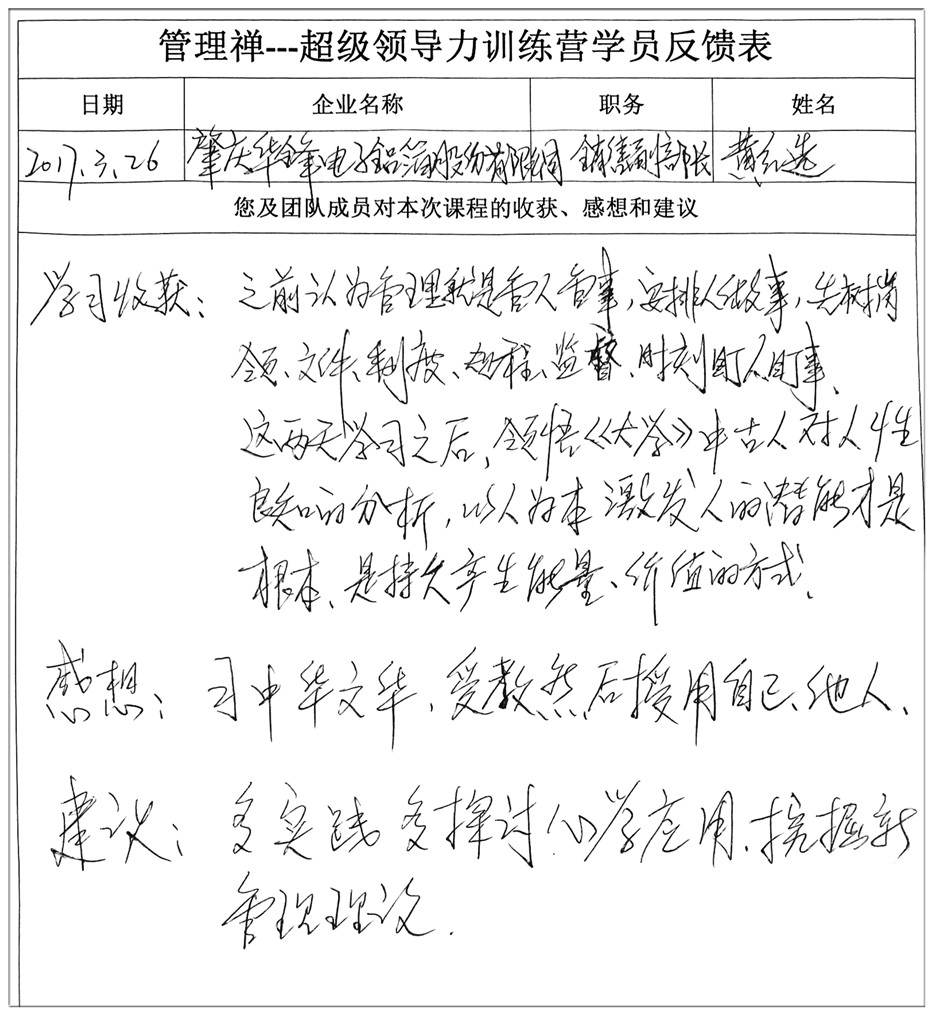 管理禅---超级领导力训练营学员反馈表
日期 企业名称 职务 姓名
2017.3.26 肇庆华锋电子铝箔股份有限公司 销售副部长 黄红选
您及团队成员对本次课程的收获、感想和建议
学习收获：之前认为管理就是管人管事，安排人做事，先树岗
领、文件、制度、流程、监督、时刻盯人盯事、
这两天学习之后，领悟《大学》中古人对人性
良知的分析，以人为本 激发人的潜能才是
根本、是持久产生能量、价值的方式、
感想：习中华文华、受教然后授用自己、他人、
建议：多实践 多探讨心学应用、挖掘新
管理理议.